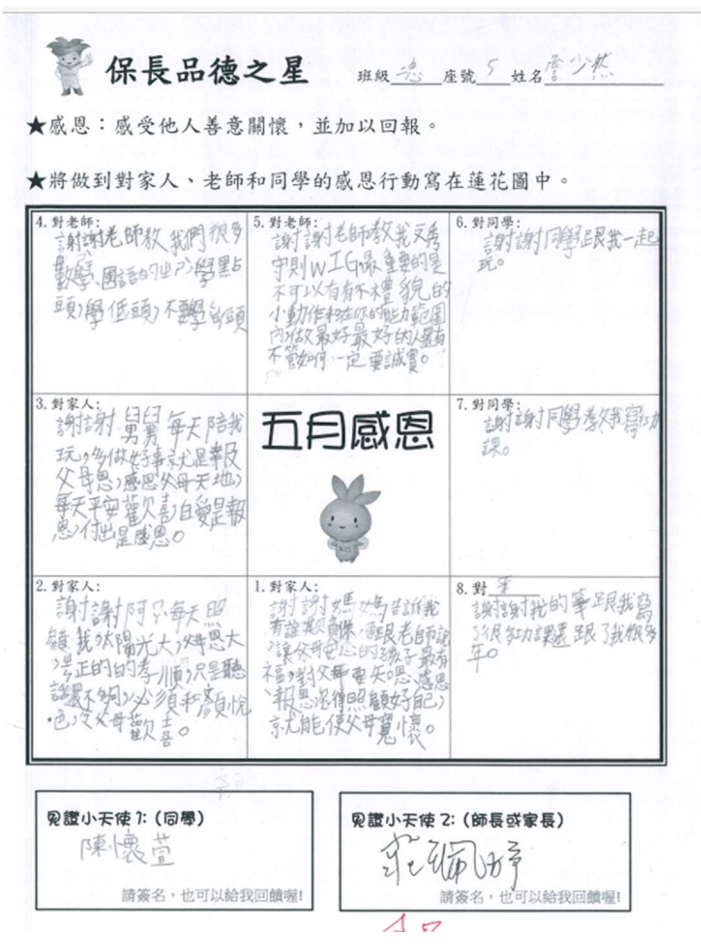 保長品德之星
班級 忠 座號 5 姓名 詹少然
★感恩：感受他人善意關懷，並加以回報。
★將做到對家人、老師和同學的感恩行動寫在蓮花圖中。
4. 對老師：
謝謝老師教我們很多
數學、國語的
學點
頭，學低頭，不要學
頭
5. 對老師：
謝謝老師教我
守則WIG，最重要的是
不可以有有不禮貌的
小動作和在你的能力範圍
內，做最好最好的人還有
不管如何一定要誠實。
6. 對同學：
謝謝同學跟我一起
玩。
3. 對家人：
謝謝舅舅每天陪我
玩，多做好事就是報
父母恩，感恩父母天地，
每天平安歡喜，自愛是報
恩，付出是感恩。
五月感恩
7. 對同學：
謝謝同學教我寫功
課。
2. 對家人：
謝謝阿公每天照
顧我，太陽光大，父母恩大
，真正的的孝順，只是聽
話還不夠，必須和顏悅
色，令父母歡喜。
1. 對家人：
謝謝媽媽告訴我
有誰欺負你，要跟老師說
，讓父母安心的孩子最有
福，對父母要知恩、感恩
、報恩，懂得照顧好自己，
就能使父母寬懷。
8. 對 筆
謝謝我的筆跟我寫
了很多功課還跟了我很多
年。
見證小天使1：(同學)
陳懷萱
請簽名，也可以給我回饋喔!
見證小天使2：(師長或家長)
莊珮妤
請簽名，也可以給我回饋喔!